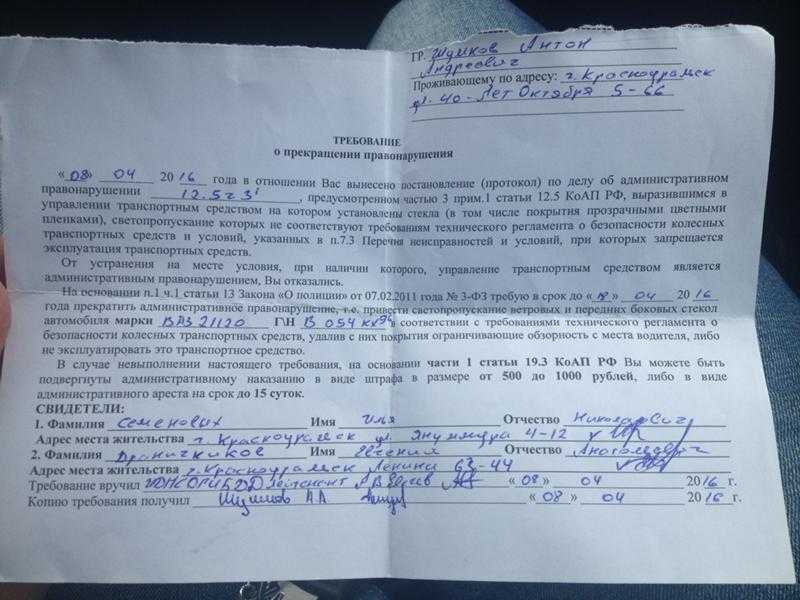 ГР. Шумков Антон
Андреевич
Проживающему по адресу: г. Красноуральск
ул. 40-Лет Октября 5-66
ТРЕБОВАНИЕ
о прекращении правонарушения
«08» 04 2016 года в отношении Вас вынесено постановление (протокол) по делу об административном
правонарушении 12.5ч3¹, предусмотренном частью 3 прим.1 статьи 12.5 КоАП РФ, выразившимся в
управлении транспортным средством на котором установлены стекла (в том числе покрытия прозрачными цветными
пленками), светопропускание которых не соответствуют требованиям технического регламента о безопасности колесных
транспортных средств и условий, указанных в п.7.3 Перечня неисправностей и условий, при которых запрещается
эксплуатация транспортных средств.
От устранения на месте условия, при наличии которого, управление транспортным средством является
административным правонарушением, Вы отказались.
На основании п.1 ч.1 статьи 13 Закона «О полиции» от 07.02.2011 года № 3-ФЗ требую в срок до «18» 04 2016
года прекратить административное правонарушение, т.е. привести светопропускание ветровых и передних боковых стекол
автомобиля марки ВАЗ 21120 Г\Н В 054 КХ 96 в соответствии с требованиями технического регламента о
безопасности колесных транспортных средств, удалив с них покрытия ограничивающие обзорность с места водителя, либо
не эксплуатировать это транспортное средство.
В случае невыполнении настоящего требования, на основании части 1 статьи 19.3 КоАП РФ Вы можете быть
подвергнуты административному наказанию в виде штрафа в размере от 500 до 1000 рублей, либо в виде
административного ареста на срок до 15 суток.
СВИДЕТЕЛИ:
1. Фамилия Семеновых Имя Илья Отчество Николаевич
Адрес места жительства г. Красноуральск ул. 4-12
2. Фамилия Имя Евгений Отчество Анатольевич
Адрес места жительства г. Красноуральск Ленина 63-44
Требование вручил лейтенант «08» 04 2016 г.
Копию требования получил Шумков А А «08» 04 2016 г.